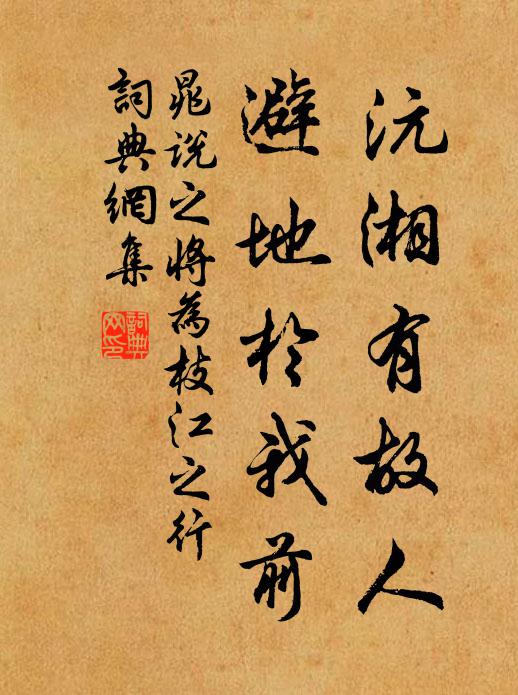 沅湘有故人
避地於我前
晁說之將為枝江之行
詞典網集
詞典網印